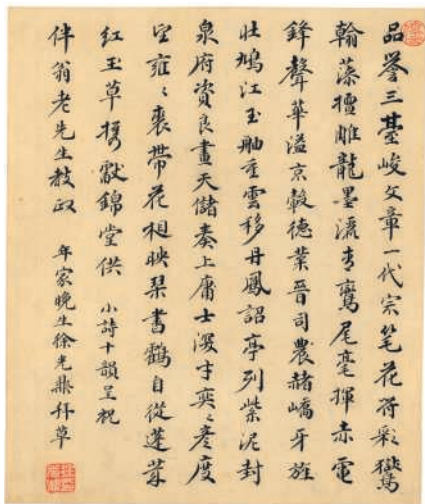 品譽三臺峻文章一代宗笔花符彩鷟
翰藻擅雕龍墨流青鸞尾毫揮赤電
鋒聲華溢京轂德業晉司農赭嶠牙旌
壯鳩江玉舳重雲移丹鳳詔亭列紫泥封
泉府資良畫天儲奏上庸士寸奕々彥度
望雍々裘帶花相映琴書鶴自從蓬萊
紅玉草携獻錦堂供 小詩十韻呈祝
伴翁老先生教政 年家晚生徐光拜草